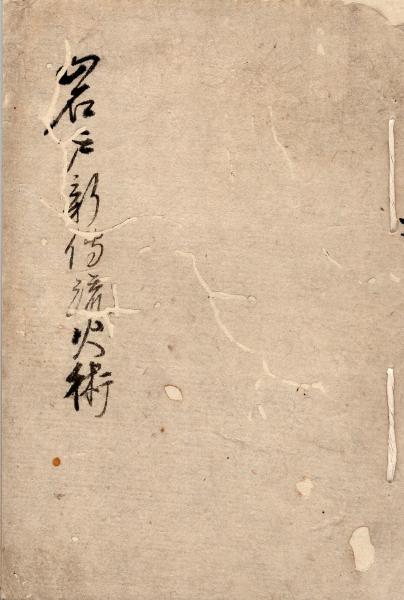 岩戸新傳流火術